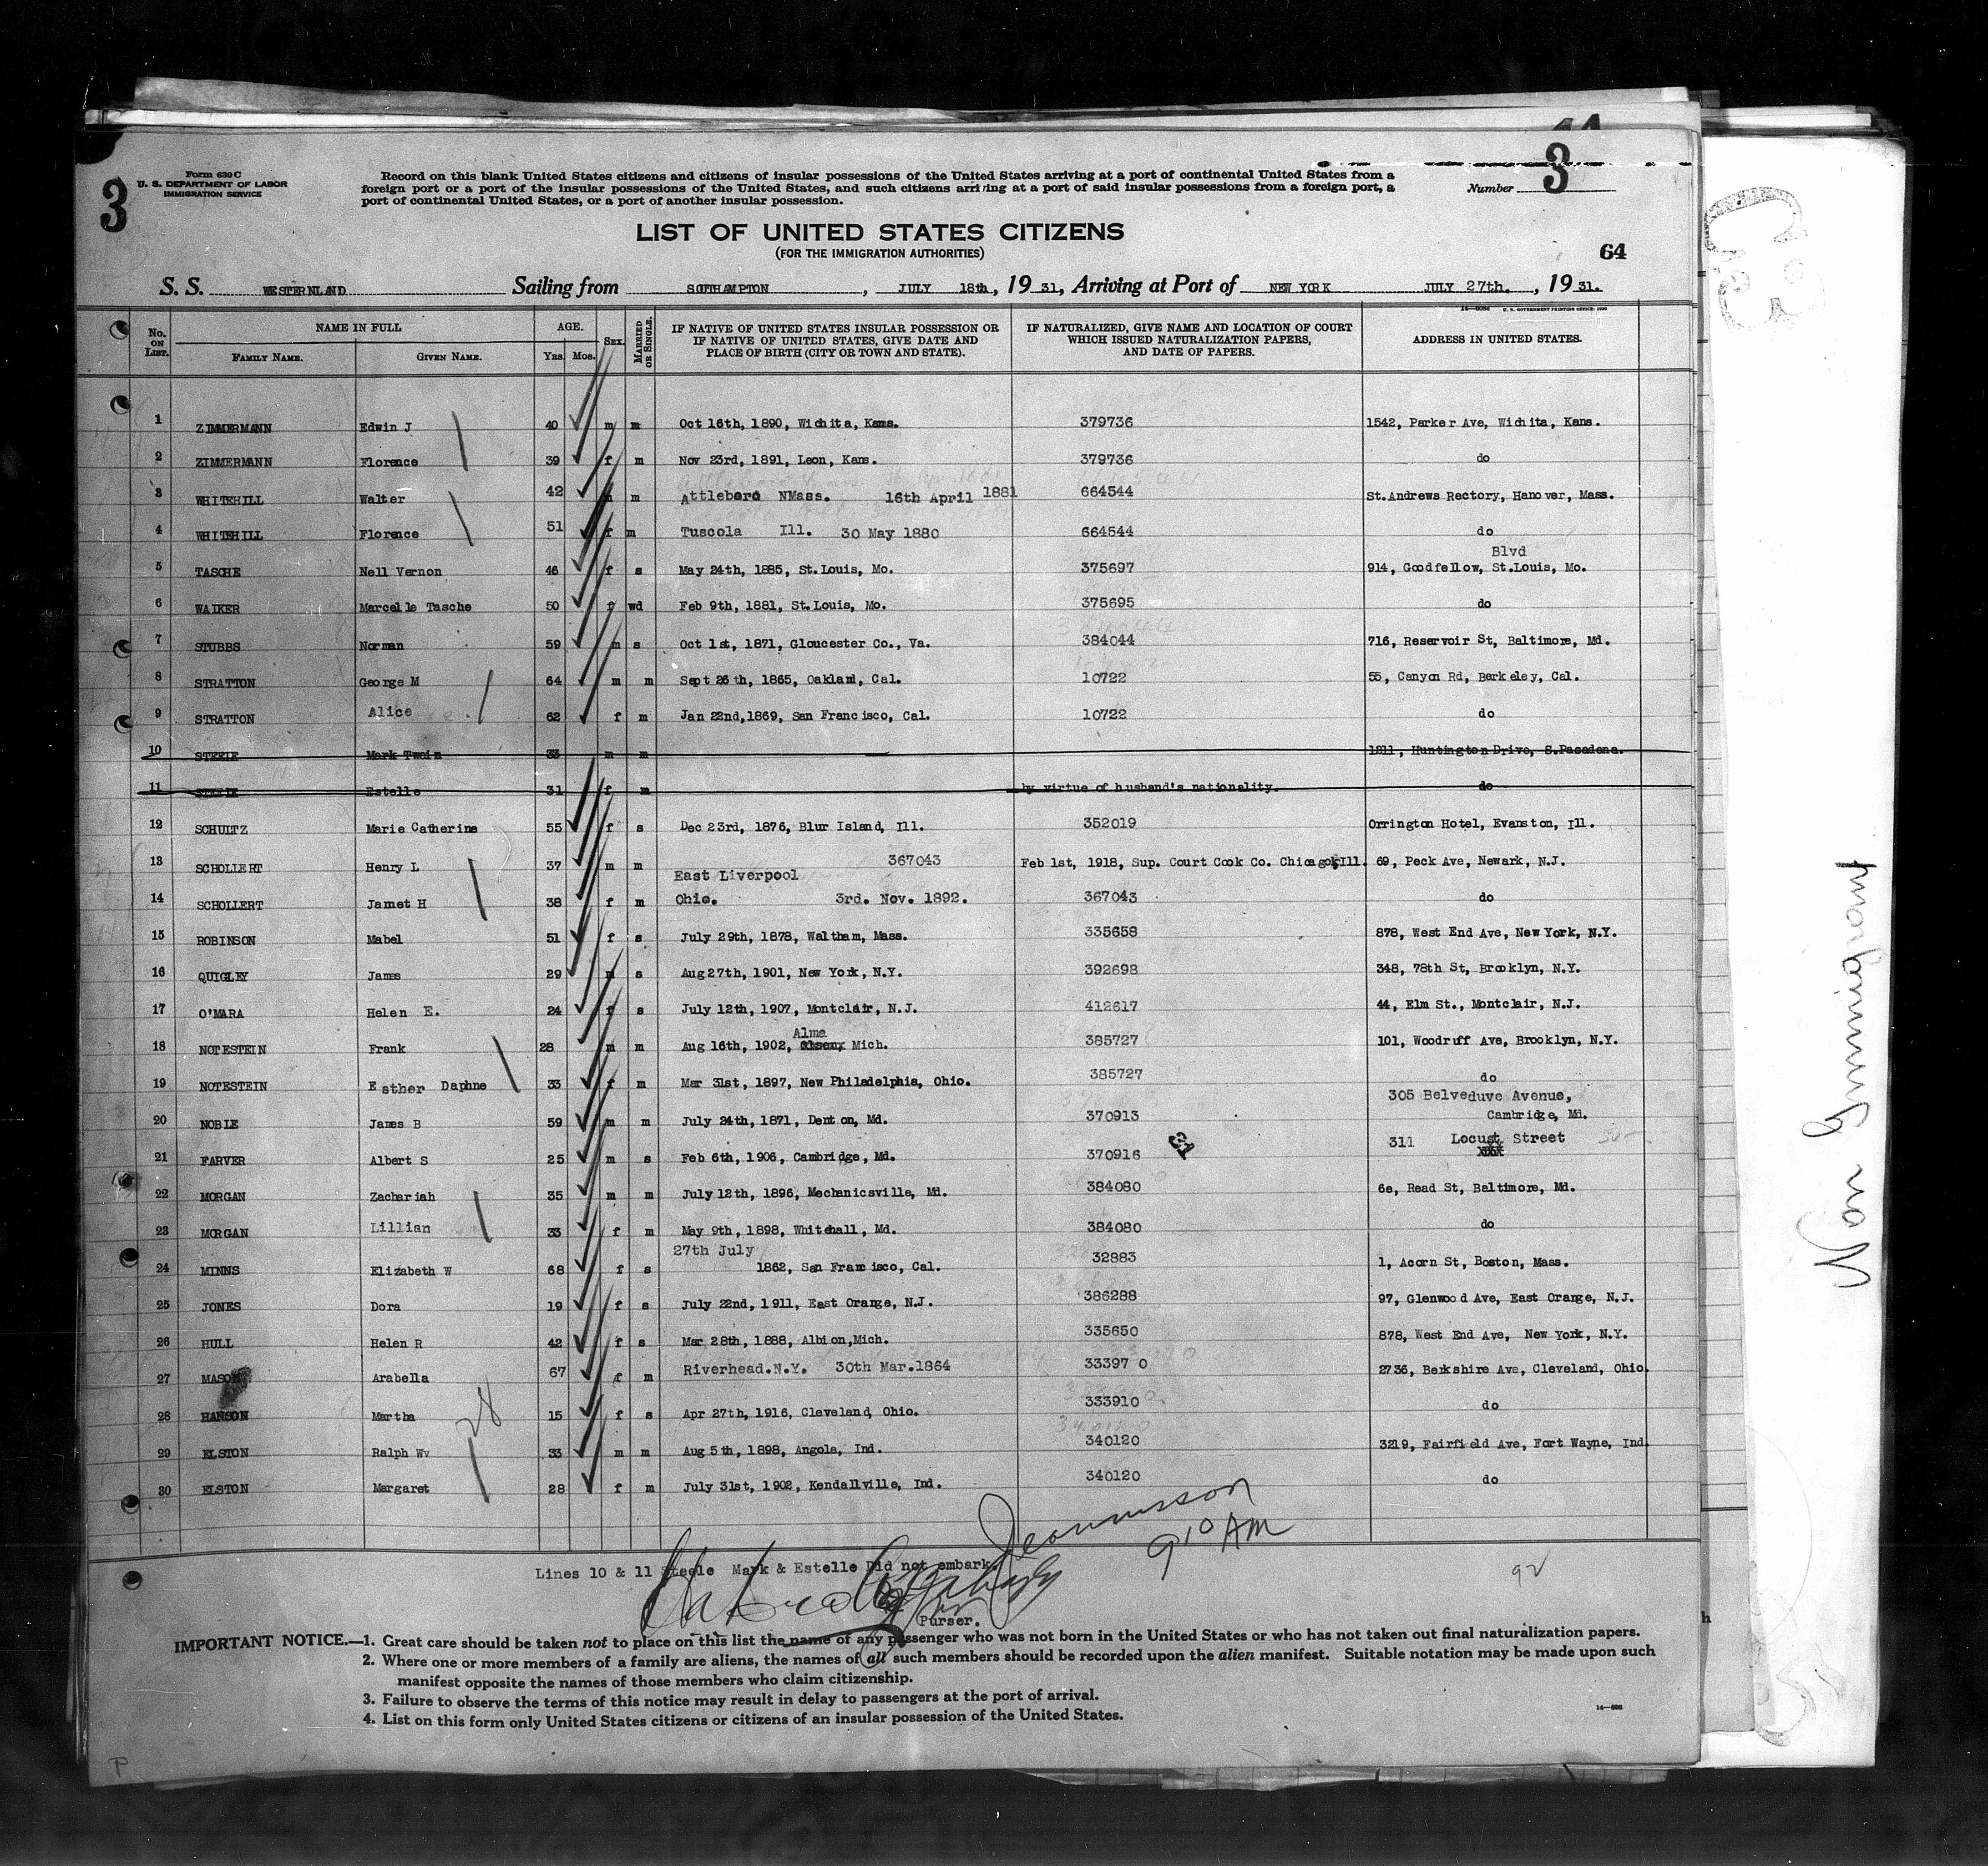 3
Form 630 C
U. S. DEPARTMENT OF LABOR
IMMIGRATION SERVICE
Record on this blank United States citizens and citizens of insular possessions of the United States arriving at a port of continental United States from a
foreign port or a port of the insular possessions of the United States, and such citizens arriving at a port of said insular possessions from a foreign port, a
port of continental United States, or a port of another insular possession.
Number 3
LIST OF UNITED STATES CITIZENS
(FOR THE IMMIGRATION AUTHORITIES)
64
S. S. WESTERNLAND Sailing from SOUTHAMPTON, JULY 18th, 1931, Arriving at Port of NEW YORK JULY 27th., 1931.
No. ON LIST. NAME IN FULL FAMILY NAME. GIVEN NAME. AGE. Yrs. Mos. Sex. MARRIED OR SINGLE. IF NATIVE OF UNITED STATES INSULAR POSSESSION OR IF NATIVE OF UNITED STATES, GIVE DATE AND PLACE OF BIRTH (CITY OR TOWN AND STATE). IF NATURALIZED, GIVE NAME AND LOCATION OF COURT WHICH ISSUED NATURALIZATION PAPERS, AND DATE OF PAPERS. ADDRESS IN UNITED STATES.
1 ZIMMERMANN Edwin J 40 m m Oct 16th, 1890, Wichita, Kans. 379736 1542, Parker Ave, Wichita, Kans.
2 ZIMMERMANN Florence 39 f m Nov 23rd, 1891, Leon, Kans. 379736 do
3 WHITEHILL Walter 42 m Attleboro NMass. 16th April 1881 664544 St.Andrews Rectory, Hanover, Mass.
4 WHITEHILL Florence 51 f m Tuscola Ill. 30 May 1880 664544 do
5 TASCHE Nell Vernon 46 f s May 24th, 1885, St.Louis, Mo. 375697 914, Goodfellow, Blvd St.Louis, Mo.
6 WALKER Marcelle Tasche 50 f wd Feb 9th, 1881, St.Louis, Mo. 375695 do
7 STUBBS Norman 59 m s Oct 1st, 1871, Gloucester Co., Va. 384044 716, Reservoir St, Baltimore, Md.
8 STRATTON George M 64 m m Sept 26th, 1865, Oakland, Cal. 10722 55, Canyon Rd, Berkeley, Cal.
9 STRATTON Alice 62 f m Jan 22nd,1869, San Francisco, Cal. 10722 do
10 STEELE Mark Twain 33 m m 1811, Huntington Drive, S.Pasadena.
11 STEELE Estelle 31 f m by virtue of husband's nationality. do
12 SCHULTZ Marie Catherine 55 f s Dec 23rd, 1876, Blur Island, Ill. 352019 Orrington Hotel, Evanston, Ill.
13 SCHOLLERT Henry L 37 m m 367043 Feb 1st, 1918, Sup. Court Cook Co. Chicago,Ill. 69, Peck Ave, Newark, N.J.
14 SCHOLLERT Jamet H 38 f m East Liverpool Ohio. 3rd. Nov. 1892. 367043 do
15 ROBINSON Mabel 51 f s July 29th, 1878, Waltham, Mass. 335658 878, West End Ave, New York, N.Y.
16 QUIGLEY James 29 m s Aug 27th, 1901, New York, N.Y. 392698 348, 78th St, Brooklyn, N.Y.
17 O'MARA Helen E. 24 f s July 12th, 1907, Montclair, N.J. 412617 44, Elm St., Montclair, N.J.
18 NOTESTEIN Frank 28 m m Aug 16th, 1902, Alma Mich. 385727 101, Woodruff Ave, Brooklyn, N.Y.
19 NOTESTEIN Esther Daphne 33 f m Mar 31st, 1897, New Philadelphia, Ohio. 385727 do
20 NOBLE James B 59 m m July 24th, 1871, Denton, Md. 370913 305 Belveduve Avenue, Cambridge, Md.
21 FARVER Albert S 25 m s Feb 6th, 1906, Cambridge, Md. 370916 311 Locust Street
22 MORGAN Zachariah 35 m m July 12th, 1896, Mechanicsville, Md. 384080 6e, Read St, Baltimore, Md.
23 MORGAN Lillian 33 f m May 9th, 1898, Whitehall, Md. 384080 do
24 MINNS Elizabeth W 68 f s 27th July 1862, San Francisco, Cal. 32883 1, Acorn St, Boston, Mass.
25 JONES Dora 19 f s July 22nd, 1911, East Orange, N.J. 386288 97, Glenwood Ave, East Orange, N.J.
26 HULL Helen R 42 f s Mar 28th, 1888, Albion,Mich. 335650 878, West End Ave, New York, N.Y.
27 MASON Arabella 67 f m Riverhead.N.Y. 30th Mar.1864 33397 0 2736, Berkshire Ave, Cleveland, Ohio.
28 HANSON Martha 15 f s Apr 27th, 1916, Cleveland, Ohio. 333910 do
29 ELSTON Ralph Wv 33 m m Aug 5th, 1898, Angola, Ind. 340120 3219, Fairfield Ave, Fort Wayne, Ind.
30 ELSTON Margaret 28 f m July 31st, 1902, Kendallville, Ind. 340120 do
9 10 AM
Lines 10 & 11 Steele Mark & Estelle Did not embark.
92
Purser.
IMPORTANT NOTICE.—1. Great care should be taken not to place on this list the name of any passenger who was not born in the United States or who has not taken out final naturalization papers.
2. Where one or more members of a family are aliens, the names of all such members should be recorded upon the alien manifest. Suitable notation may be made upon such
manifest opposite the names of those members who claim citizenship.
3. Failure to observe the terms of this notice may result in delay to passengers at the port of arrival.
4. List on this form only United States citizens or citizens of an insular possession of the United States.
Non Immigrant